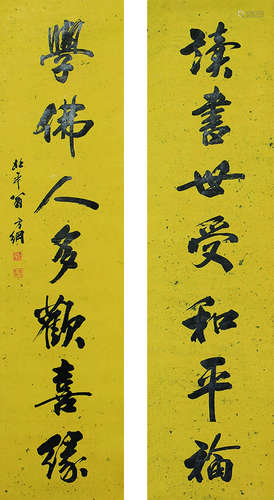 讀書世受和平福
學佛人多歡喜緣
北平翁方綱